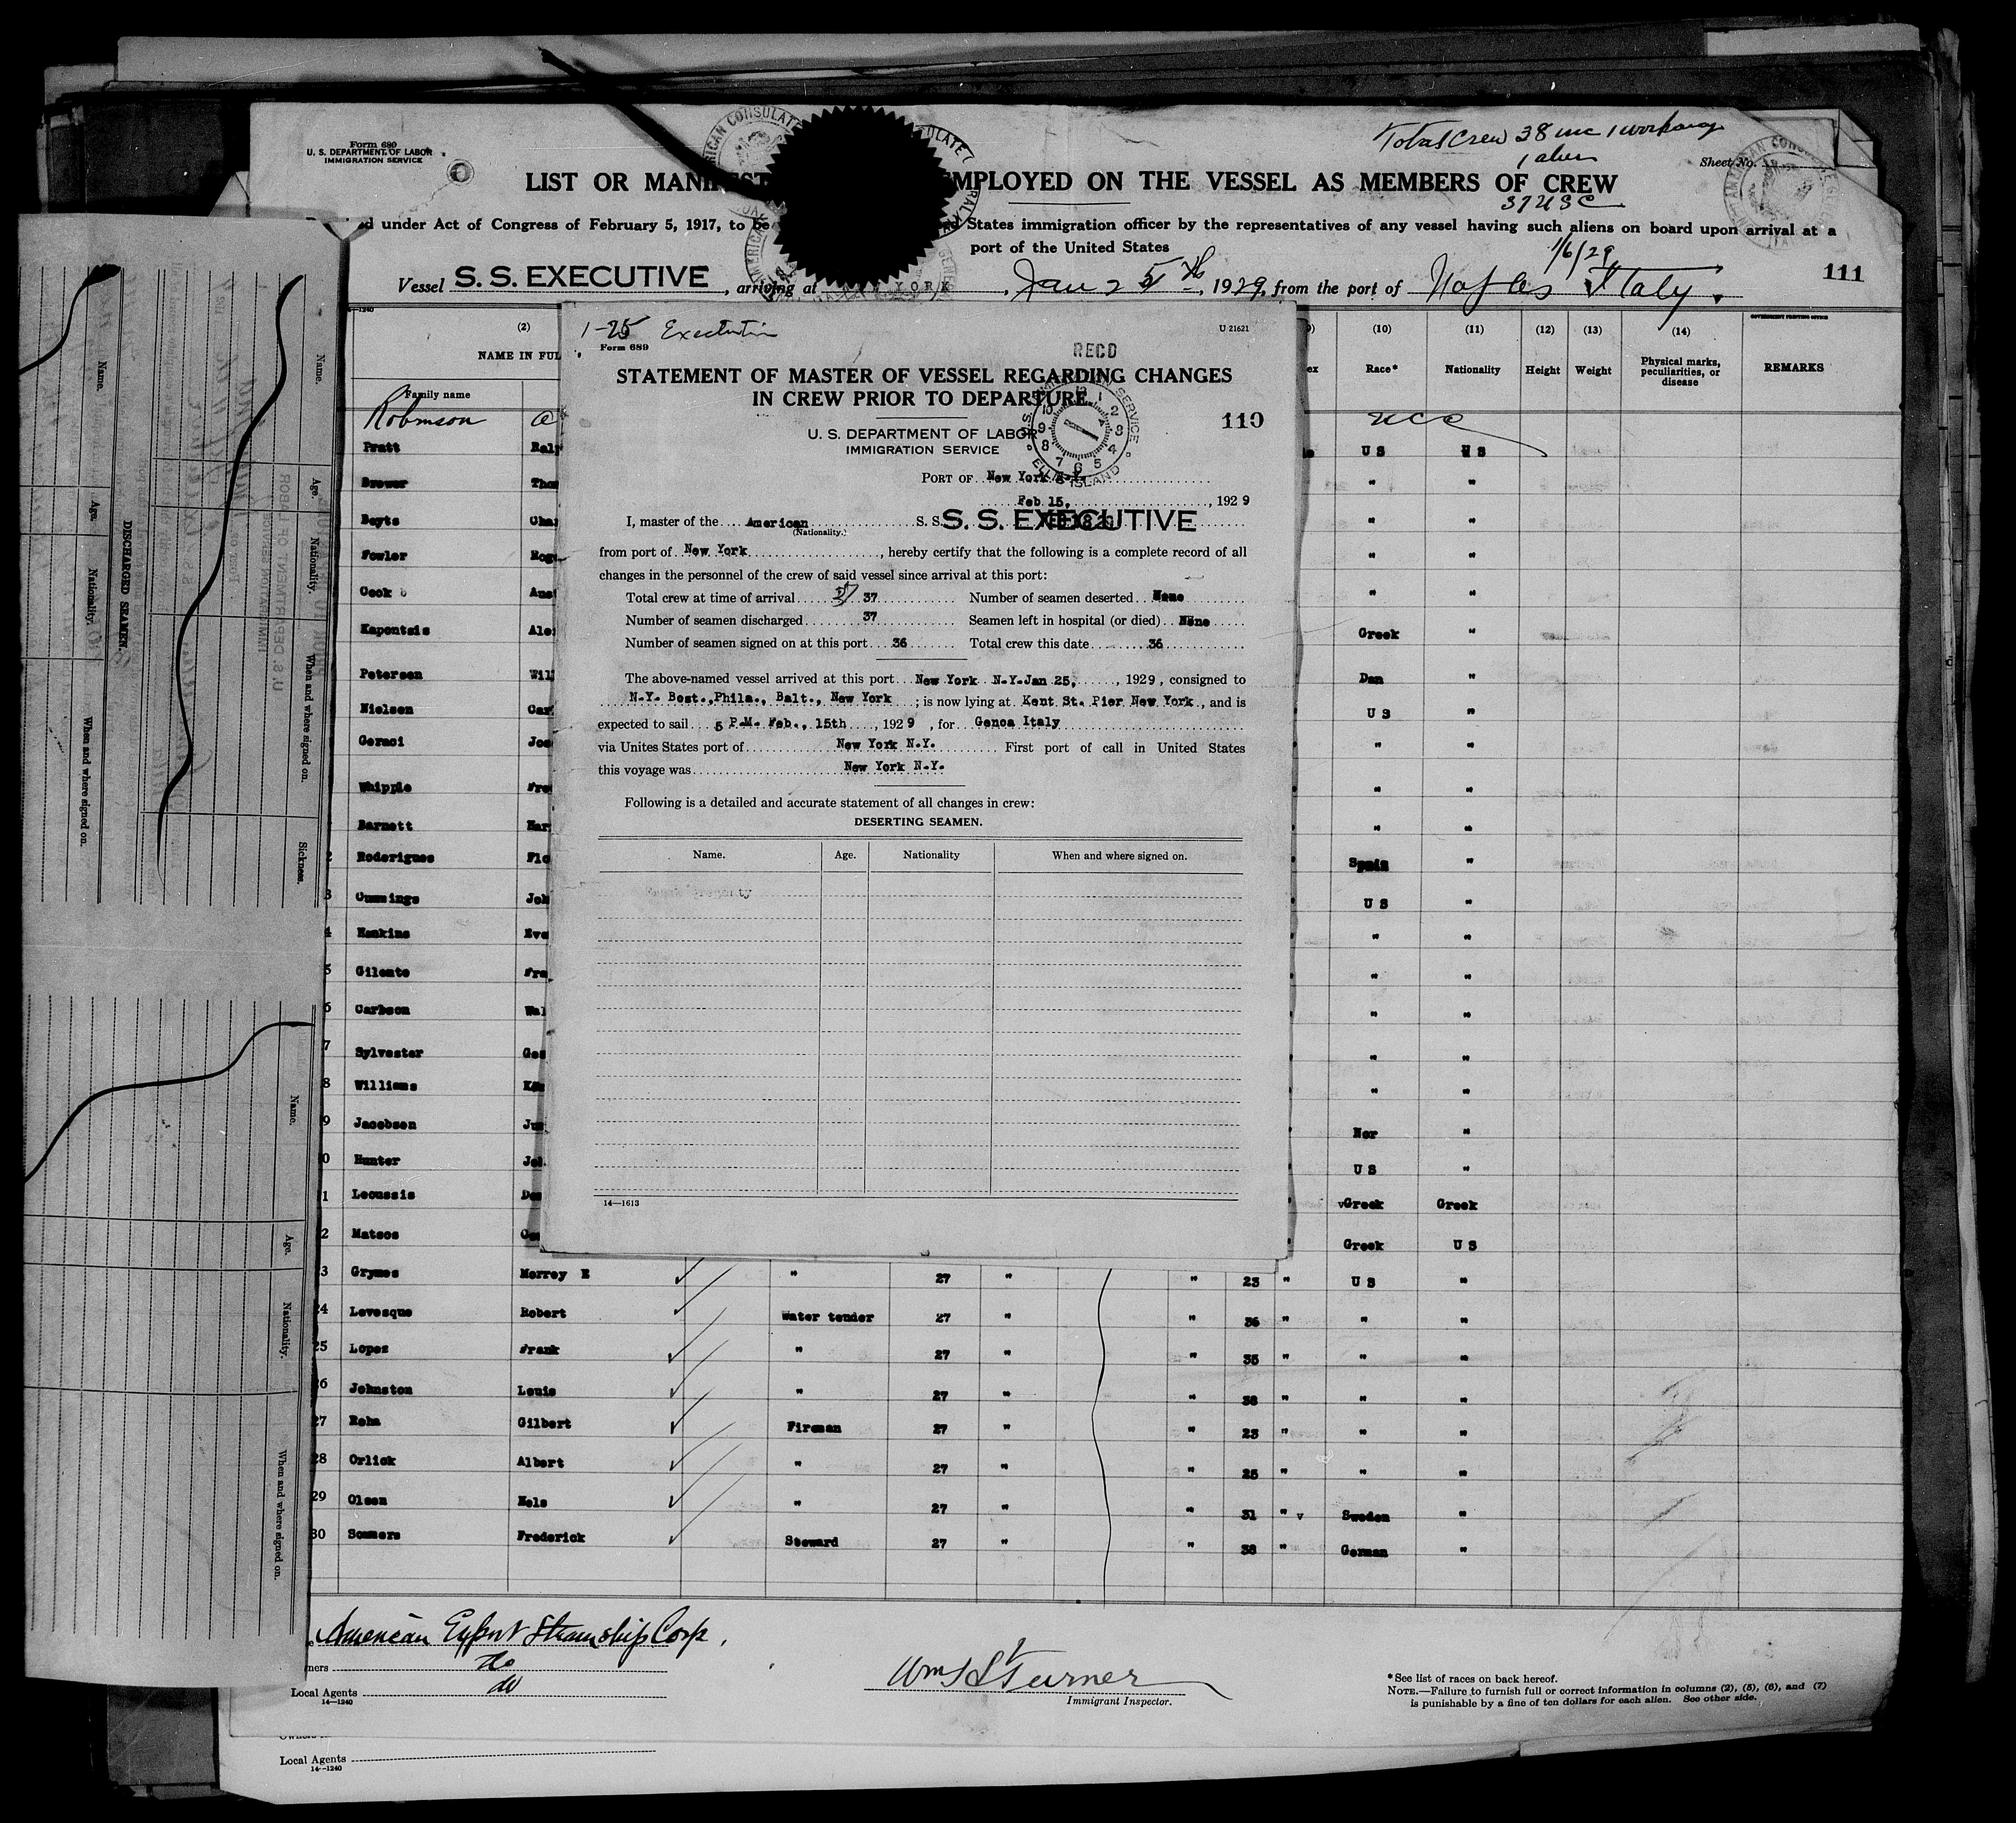 Form 689
U. S. DEPARTMENT OF LABOR
IMMIGRATION SERVICE
Total Crew 38 inc 1 workaway
1 alien
Sheet No.
LIST OR MANIFEST EMPLOYED ON THE VESSEL AS MEMBERS OF CREW
37 USC
under Act of Congress of February 5, 1917, to be States immigration officer by the representatives of any vessel having such aliens on board upon arrival at a
port of the United States
1/6/29
111
Vessel S. S. EXECUTIVE, arriving at YORK, Jan 25th, 1929, from the port of Naples Italy.
(2) (10) (11) (12) (13) (14)
GOVERNMENT PRINTING OFFICE
NAME IN FUL Race* Nationality Height Weight Physical marks, peculiarities, or disease REMARKS
Family name
Robinson
Pratt Ral U S U S
Brewer Tho " "
Boyts Cha " "
Fowler Rog " "
Cook Aus " "
Kapontsis Ale Greek "
Petersen Wil Dan "
Nielsen Car U S "
Geraci Jos " "
Whipple Fre " "
Barnett Har " "
2 Roderigues Flo Spain "
3 Cummings Joh U S "
4 Hankins Eve " "
5 Gilente Fra " "
6 Carlson Wal " "
7 Sylvester Geo " "
8 Williams " "
9 Jacobsen Nor "
0 Hunter Joh U S "
1 Lecussis Greek Greek
2 Matsos Greek U S
3 Grymes Morrey E " 27 " " 23 " U S "
24 Levesque Robert Water tender 27 " " 36 " " "
25 Lopez Frank " 27 " " 35 " " "
26 Johnston Louis " 27 " " 38 " " "
27 Reha Gilbert Fireman 27 " " 23 " " "
28 Orlick Albert " 27 " " 25 " " "
29 Olsen Nels " 27 " " 31 " v Sweden "
30 Sommers Frederick Steward 27 " " 38 " German "
American Export Steamship Corp.
ners do
Local Agents do
14—1240
Wm S Turner
Immigrant Inspector.
*See list of races on back hereof.
NOTE.—Failure to furnish full or correct information in columns (2), (5), (6), and (7)
is punishable by a fine of ten dollars for each alien. See other side.
Local Agents
14—1240
1-25 Executive
U 21621
Form 689
RECD
STATEMENT OF MASTER OF VESSEL REGARDING CHANGES
IN CREW PRIOR TO DEPARTURE
110
U. S. DEPARTMENT OF LABOR
IMMIGRATION SERVICE
ELLIS ISLAND
PORT OF New York N.Y.
Feb 15, 1929
I, master of the American S. S. S. S. EXECUTIVE
(Nationality.)
from port of New York, hereby certify that the following is a complete record of all
changes in the personnel of the crew of said vessel since arrival at this port:
Total crew at time of arrival 37 37 Number of seamen deserted None
Number of seamen discharged 37 Seamen left in hospital (or died) None
Number of seamen signed on at this port 36 Total crew this date 36
The above-named vessel arrived at this port New York N.Y. Jan 25, 1929, consigned to
N.Y. Bost., Phila., Balt., New York; is now lying at Kent St. Pier New York, and is
expected to sail 5 P.M. Feb., 15th, 1929, for Genoa Italy
via Unites States port of New York N.Y. First port of call in United States
this voyage was New York N.Y.
Following is a detailed and accurate statement of all changes in crew:
DESERTING SEAMEN.
Name. Age. Nationality When and where signed on.
14—1613
Name. Age. Nationality. When and where signed on.
DISCHARGED SEAMEN.
Name. Age. Nationality. When and where signed on. Sickness.
Name. Age. Nationality. When and where signed on.